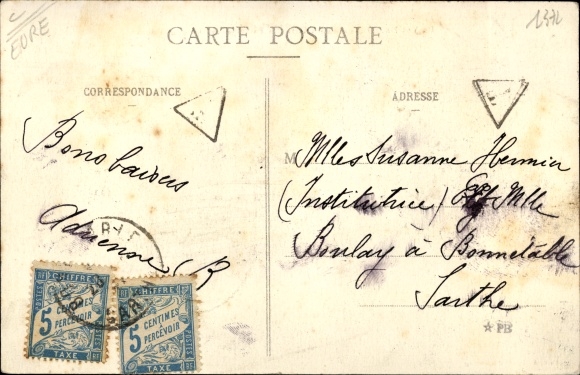 EURE
1372
CARTE POSTALE
CORRESPONDANCE
ADRESSE
T
T
Bons baisers
R
M
Mlle Susanne
(Institutrice) Mlle
Boulay à Bonnetable
Sarthe
CHIFFRE
5
CENTIMES
A
PERCEVOIR
TAXE
POSTES
RF
CHIFFRE
5
CENTIMES
A
PERCEVOIR
TAXE
POSTES
RF
PB